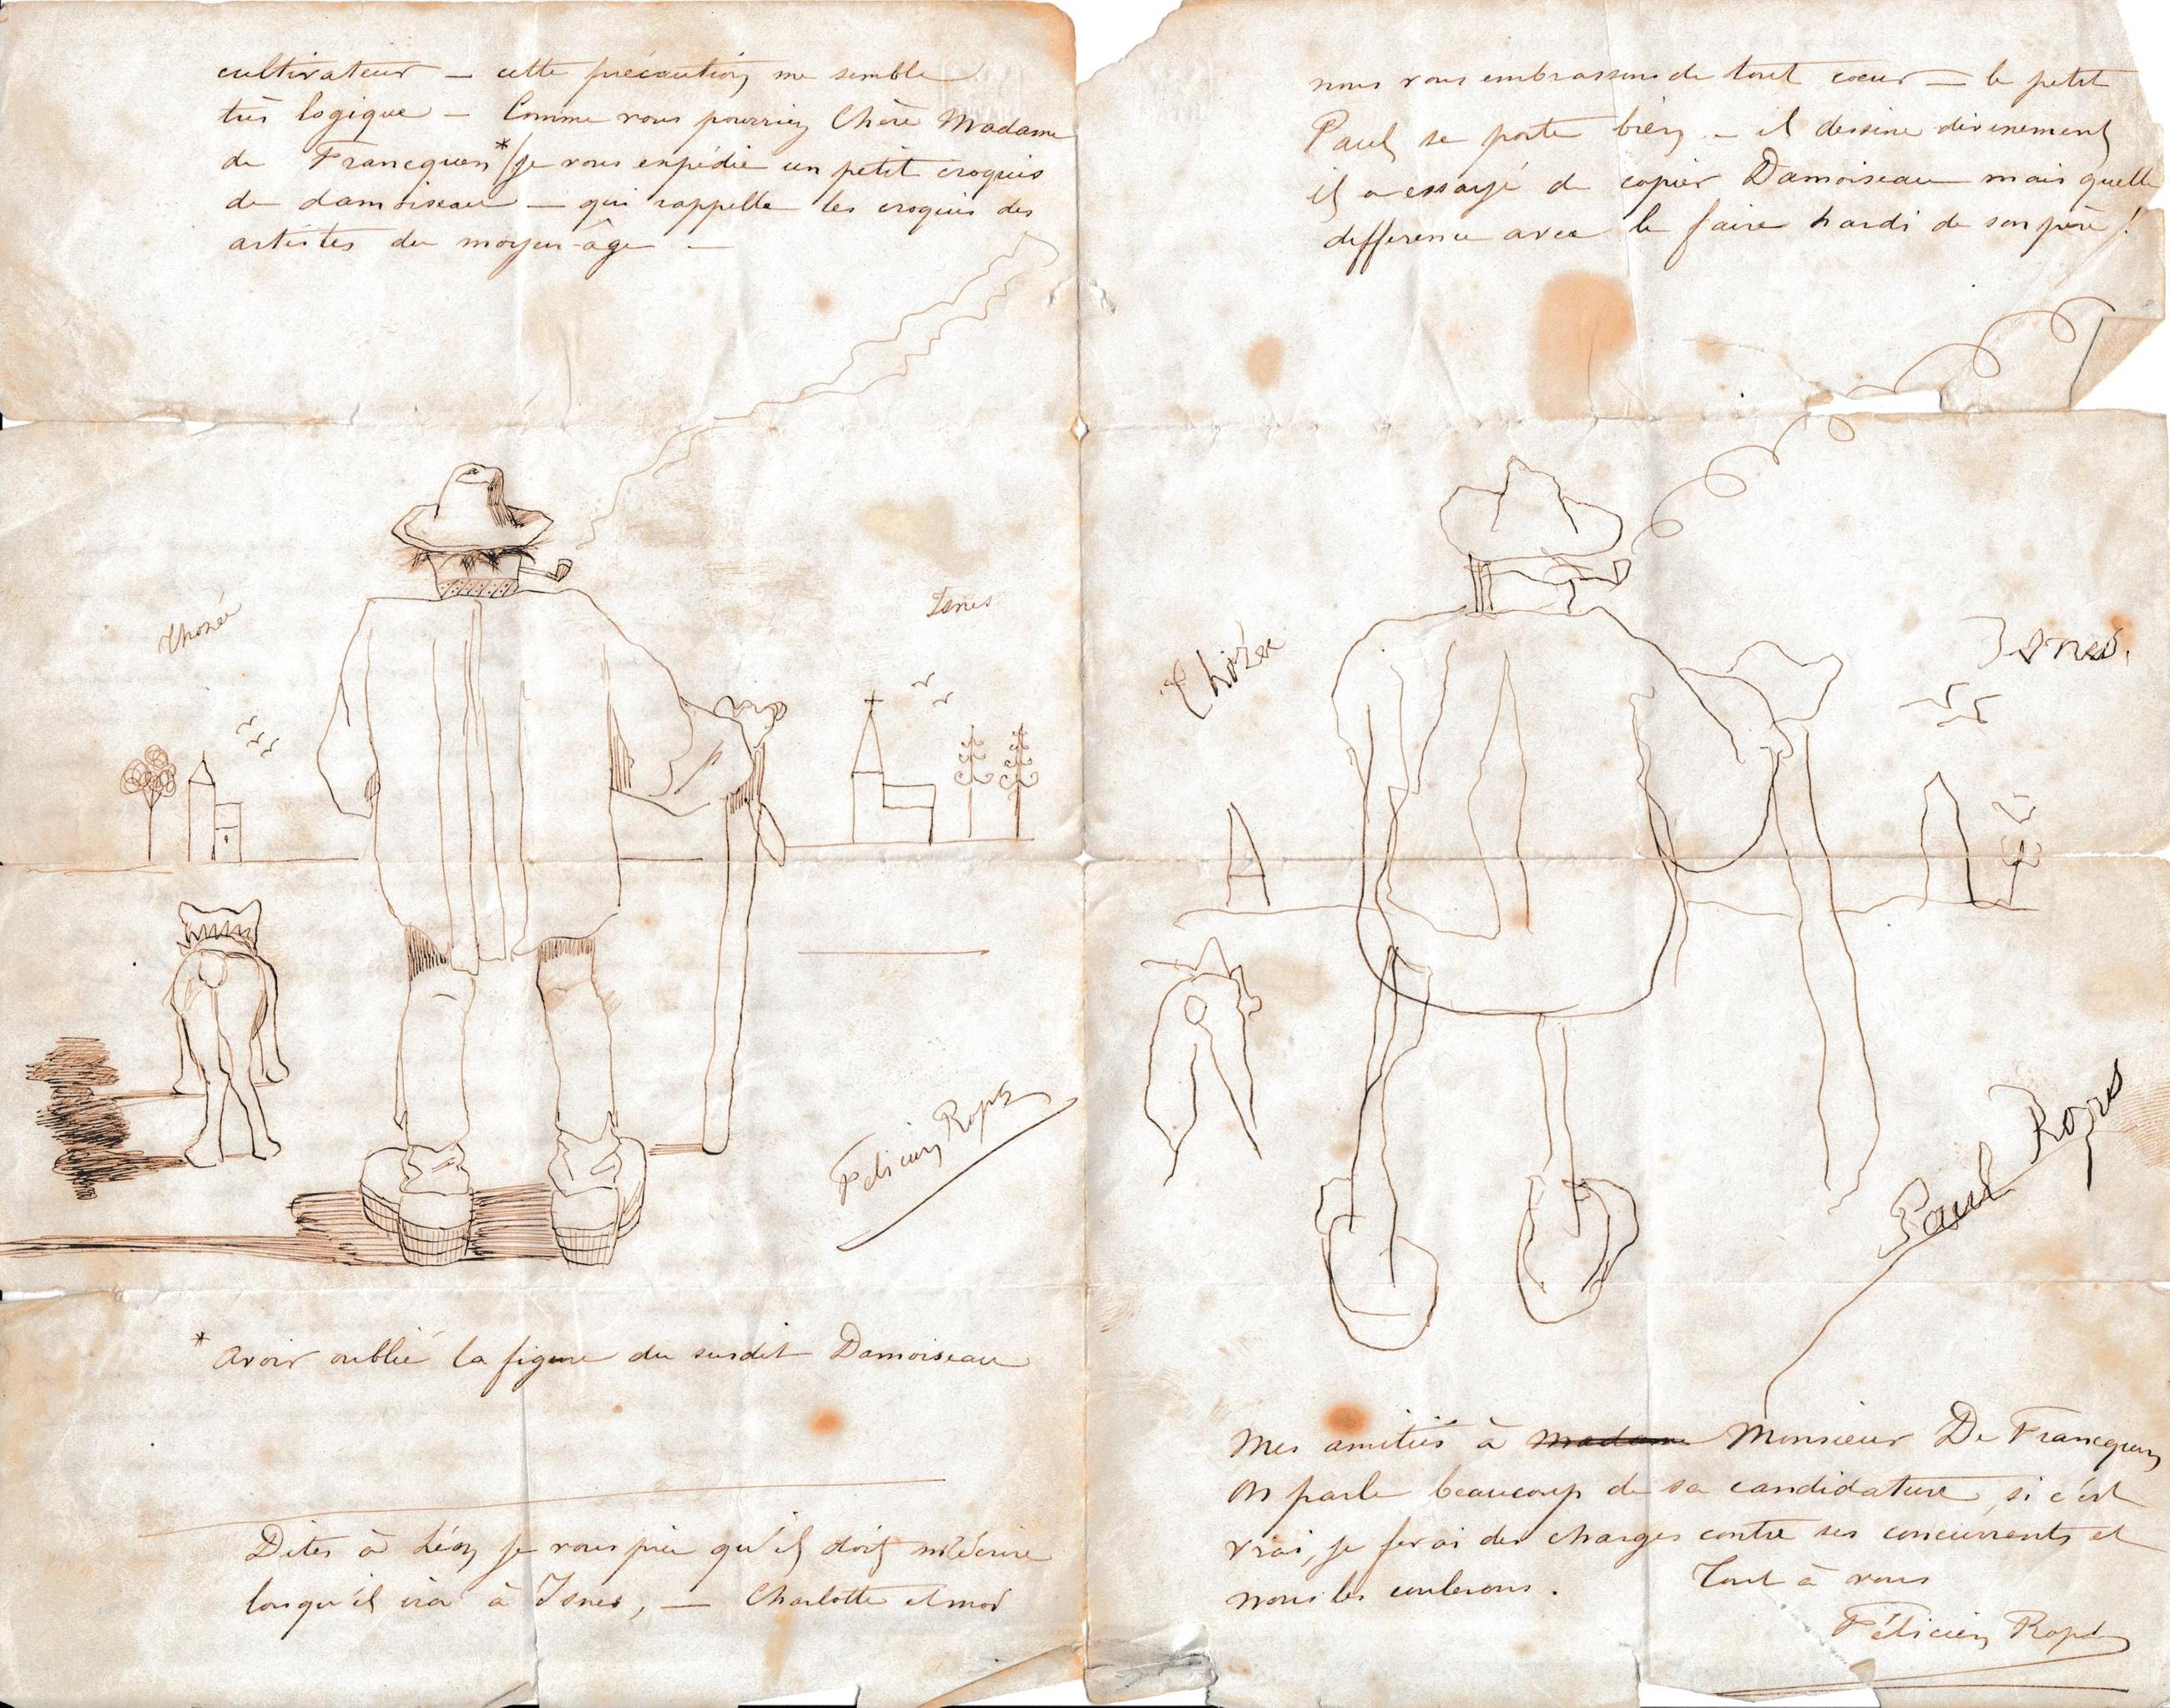 cultivateur — cette précaution me semble
très logique — Comme vous pourriez Chère Madame
de Francquen * / je vous expédie un petit croquis
de damoiseau — qui rappelle les croquis des
artistes du moyen-âge —
Thozée
Isnes
Félicien Rops
* Avoir oublié la figure du susdit Damoiseau
Dites à Léon je vous prie qu'il doit m'écrire
lorsqu'il ira à Isnes, — Charlotte et moi
nous vous embrassons de tout coeur — le petit
Paul se porte bien — il dessine divinement
il a essayé de copier Damoiseau mais quelle
difference avec le faire hardi de son père !
Thozée
Isnes.
Paul Rops
Mes amitiés à Madame Monsieur De Francquen
On parle beaucoup de sa candidature, si c'est
vrai, je ferai des charges contre ses concurrents et
nous les coulerons. Tout à vous
Félicien Rops